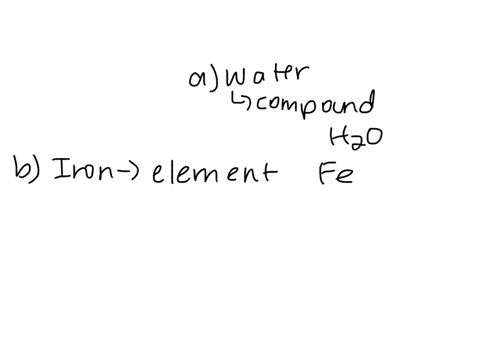 a) Water
↳ compound
H₂O
b) Iron → element Fe